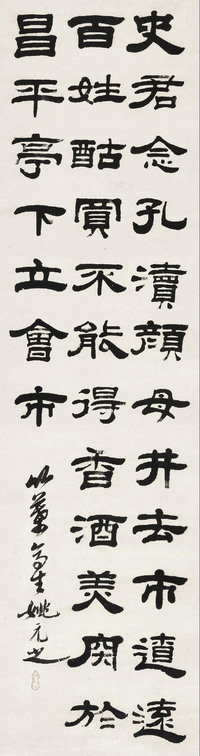 史君念孔瀆顏母井去市遼遠
百姓酤買不能得香酒美肉於
昌平亭下立會市
竹葉亭生姚元之